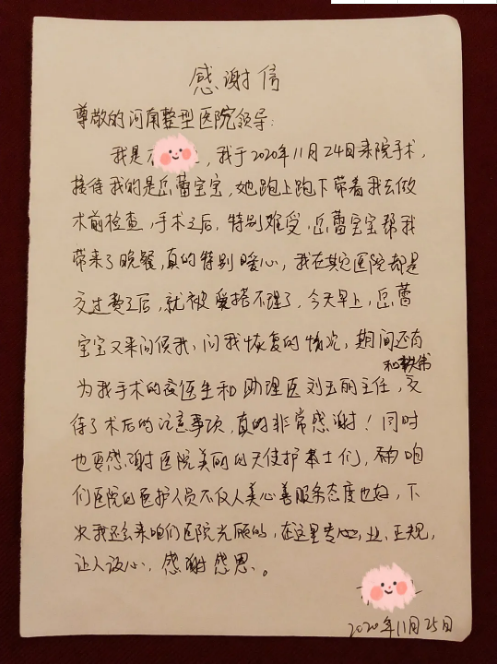 感谢信
尊敬的河南整型医院领导：
我是，我于2020年11月24日来院手术，
接待我的是岳蕾宝宝，她跑上跑下带着我去做
术前检查，手术之后，特别难受，岳蕾宝宝帮我
带来了晚餐，真的特别暖心，我在其它医院都是
交过费了后，就被爱搭不理了，今天早上，岳蕾
宝宝又来问候我，问我恢复的情况，期间还有
为我手术的医生和助理医刘玉丽主任，交
待了术后的注意事项，真的非常感谢！同时
也要感谢医院美丽的天使护士们，咱
们医院的医护人员不仅人美心善服务态度也好，下
次我还会来咱们医院光顾的，在这里专业，正规，
让人放心，感谢感恩。
2020年11月25日